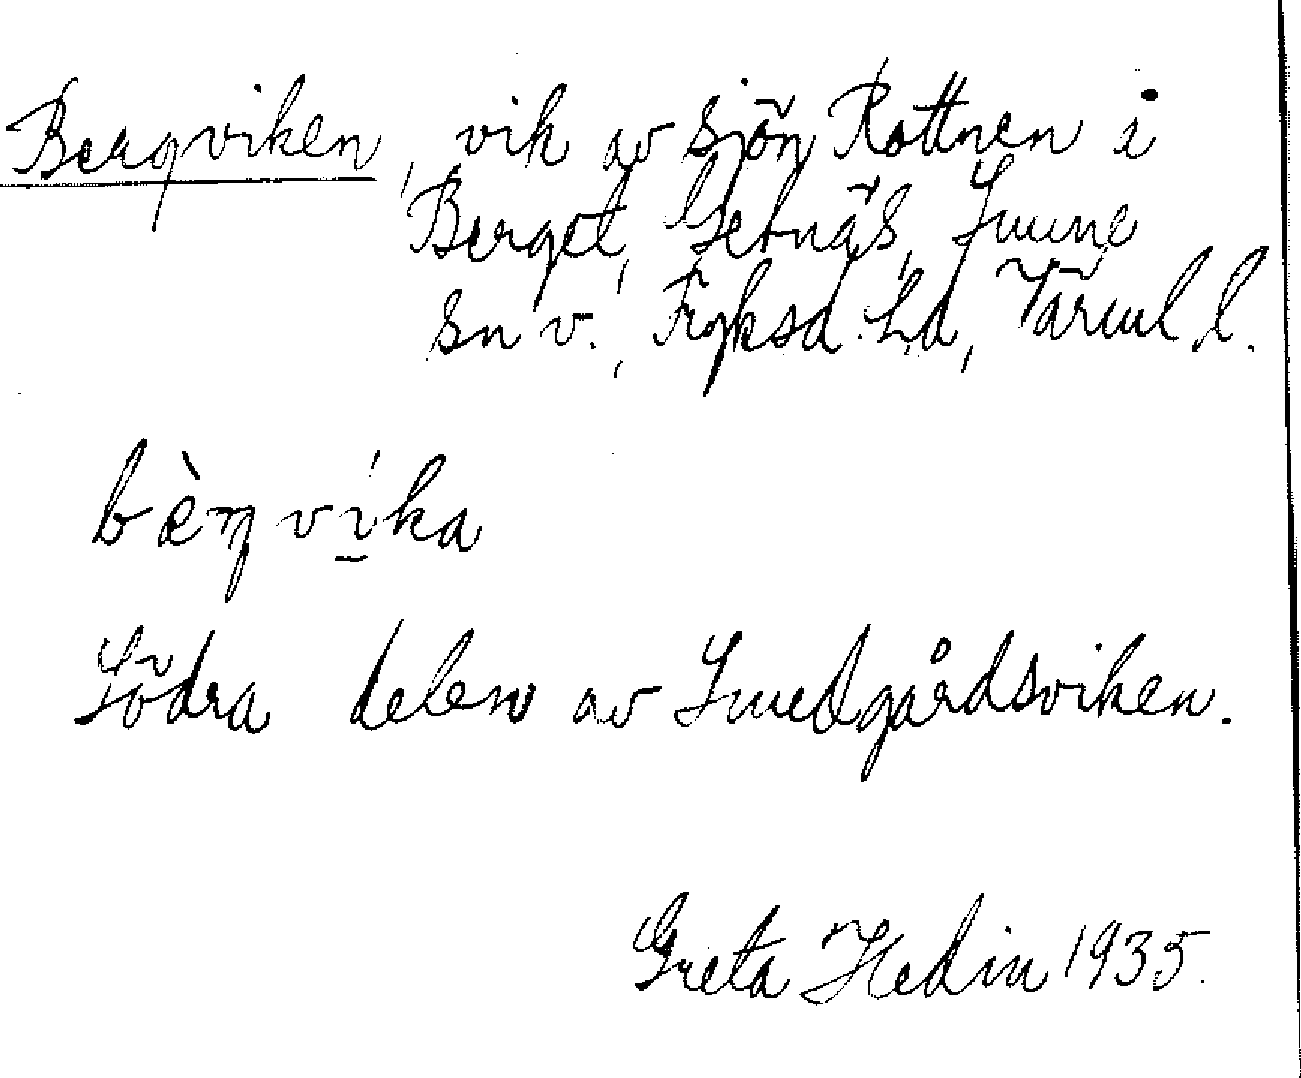 Bergviken, vik av sjön Rottnen i
Berget, Getnäs, Sunne
sn v., Fryksd. hd, Värml. l.
bèrgvíka
Södra delen av Smedgårdsviken.
Greta Hedin 1935.